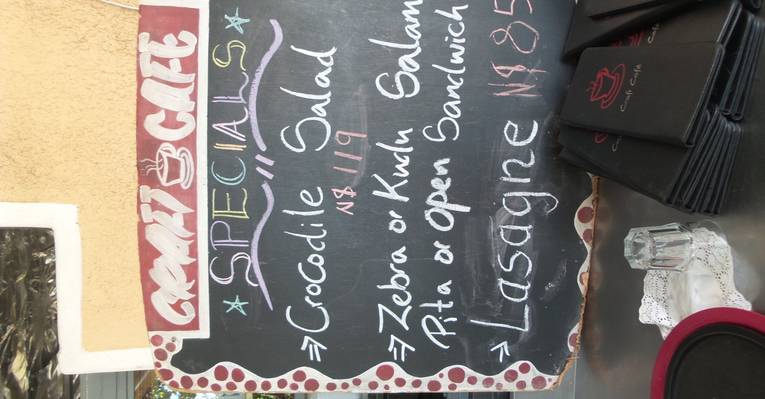 CRAFT CAFE
SPECIALS
⇒ Crocodile Salad
N$ 119
⇒ Zebra or Kudu Salam
Pita or Open Sandwich
→ Lasagne N$ 85
Craft Café